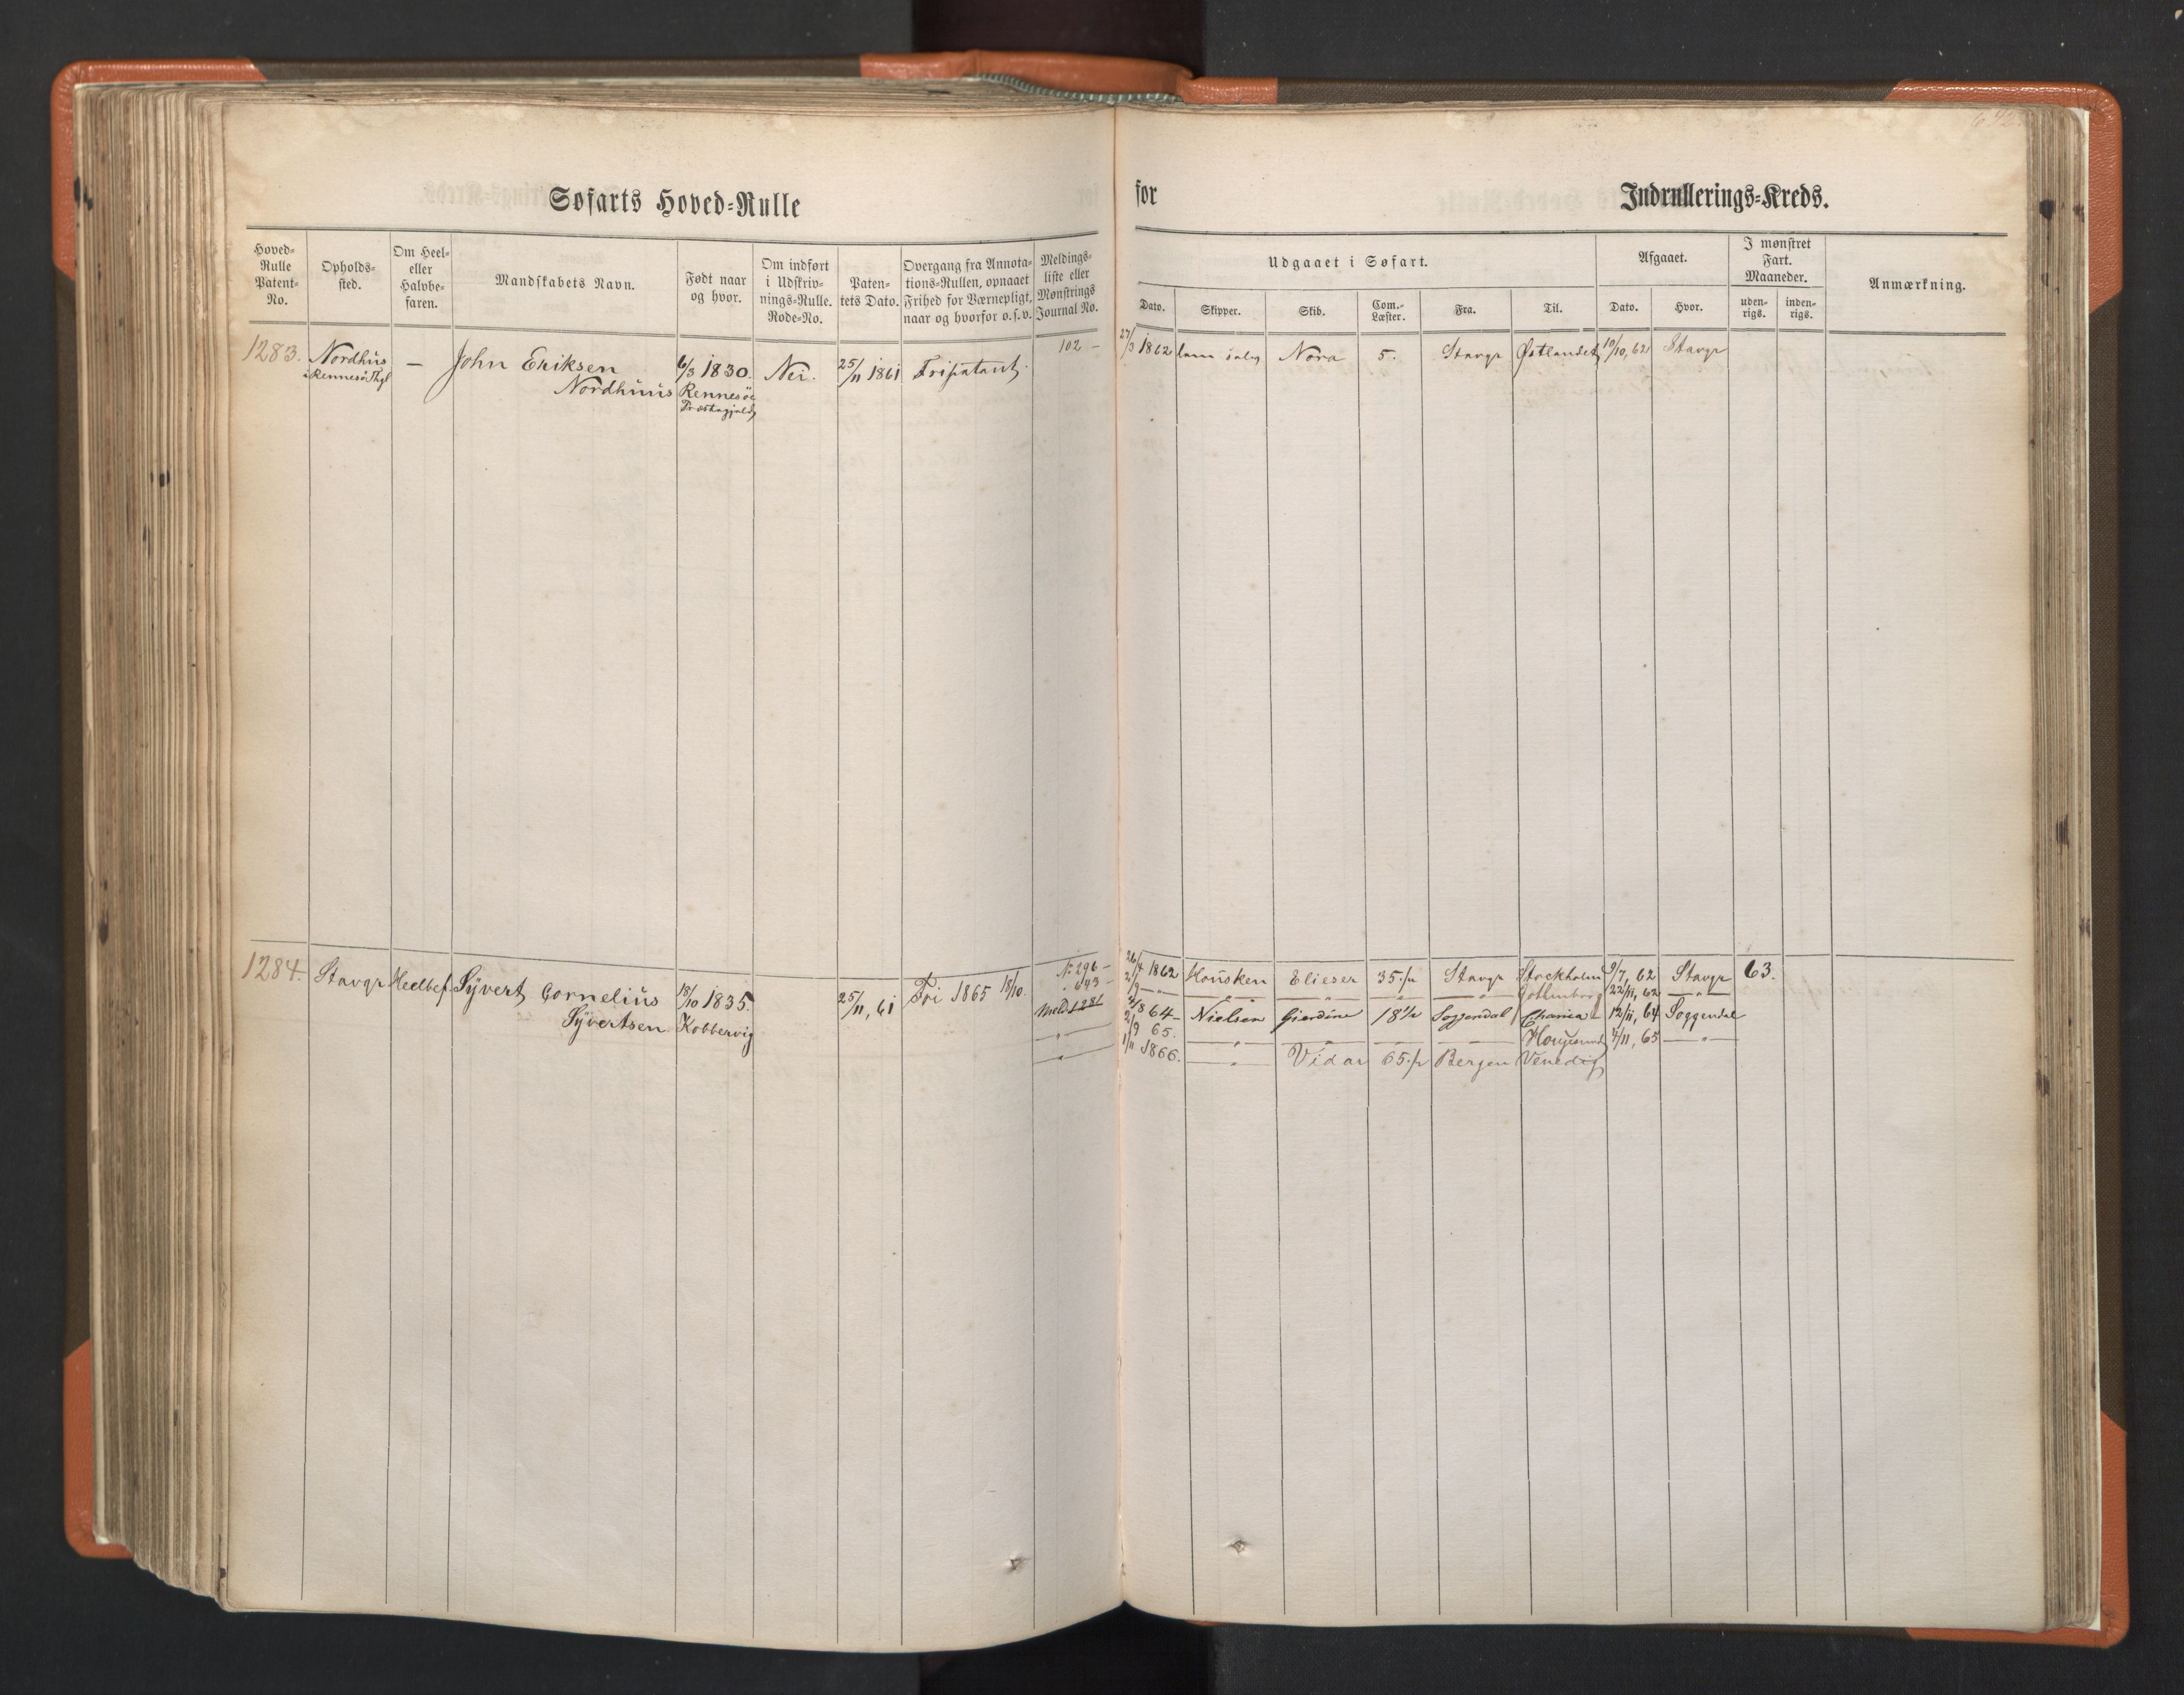 642
Søfarts Hoved-Rulle
for
Indrullerings-Kreds.
Hoved-
Rulle
Patent-
No.
Opholds-
sted.
Om Heel-
eller
Halvbe-
faren.
Mandskabets Navn.
Født naar
og hvor.
Om indført
i Udskriv-
nings-Rulle.
Rode-No.
Paten-
tets Dato.
Overgang fra Annota-
tions-Rullen, opnaaet
Frihed for Værnepligt,
naar og hvorfor o.s.v.
Meldings-
liste eller
Mønstrings
Journal No.
Udgaaet i Søfart.
Dato.
Skipper.
Skib.
Com.-
Læster.
Fra.
Til.
Afgaaet.
Dato.
Hvor.
I mønstret
Fart.
Maaneder.
uden-
rigs.
inden-
rigs.
Anmærkning.
1283. Nordhüs — John Eriksen 6/3 1830. Nei. 25/11 1861 102 — 27/3 1862 Nora 5. Stavgr Østlandet 10/10, 62 Stavgr
i Rennesö Nordhüus Rennesöe
Præstegjeld
1284. Stavgr Heelbef. Syvert Cornelius 18/10 1835. 25/11, 61 Fri 1865 18/10. No 296 — 26/4 1862 Housken Elieser 35 Stavgr Stockholm 9/7, 62 Stavgr 63.
Syvertsen Kobbervig 643 — 2/9 — " — — " — — " — " — " — Gothenborg 22/11, 62 — " —
Meld. 1281 4/8 64 — Nielsen Gierdine 18 1/2 Soggendal Chania 12/11, 64 Soggendal
— " — 2/9 65. — " — — " — — " — — " — Hougesund 4/11, 65 — " —
— " — 1/11 1866. — " — Vidar 65 Bergen Venedig